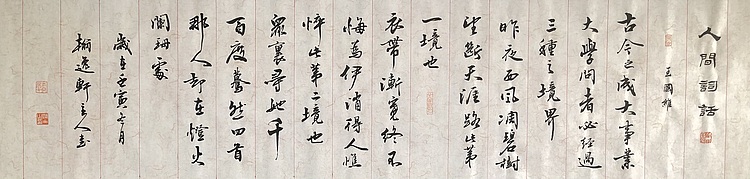 人間詞話
王國維
古今之成大事業
大學問者必經過
三種之境界
昨夜西風凋碧樹
望斷天涯路此第
一境也
衣帶漸寬終不
悔為伊消得人憔
悴此第二境也
眾裏尋他千
百度驀然回首
那人卻在燈火
闌珊處
歲在壬寅七月
翰逸軒主人書